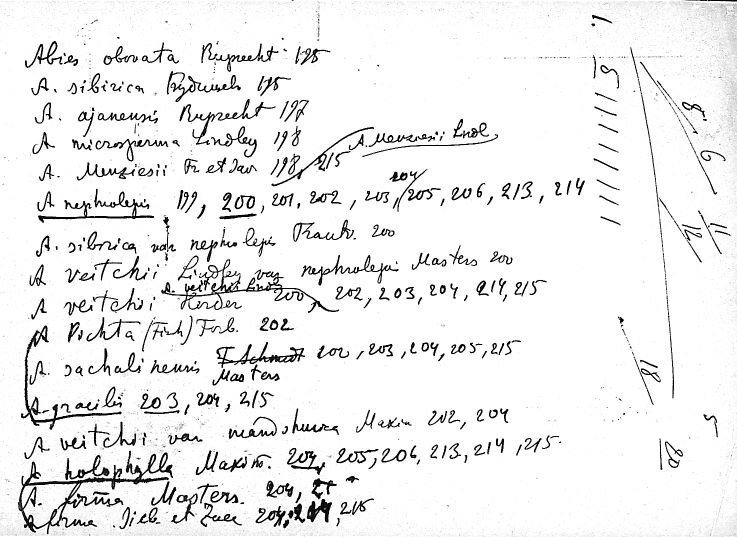 Abies obovata Ruprecht 195
A. sibirica 195
A. ajanensis Ruprecht 197
A microsperma Lindley 198
A. Menziesii Fr et Sav 198, 215 A. Menziesii Lindl
A nephrolepis 199, 200, 201, 202, 203, 204 205, 206, 213, 214
A. sibirica var nephrolepis Trautv. 200
A veitchii Lindley var nephrolepis Masters 200
A veitchii Korder 200, A. veitchii Lindl 202, 203, 204, 214, 215
A Pichta (Fisch) Forb. 202
A. sachalinensis F. Schmidt Masters 202, 203, 204, 205, 215
A. gracilis 203, 204, 215
A veitchii var mandshurica Maxim 202, 204
A holophylla Maxim. 204, 205, 206, 213, 214, 215.
A. firma Masters. 204,
A firma Sieb. et Zucc 204, 214, 215
1.
5
8
6
11
12
18
5
20